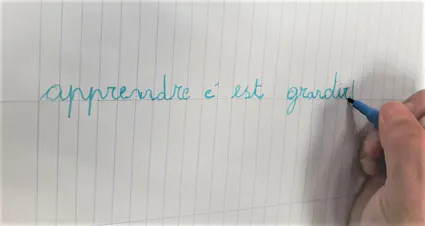 apprendre c'est grandir